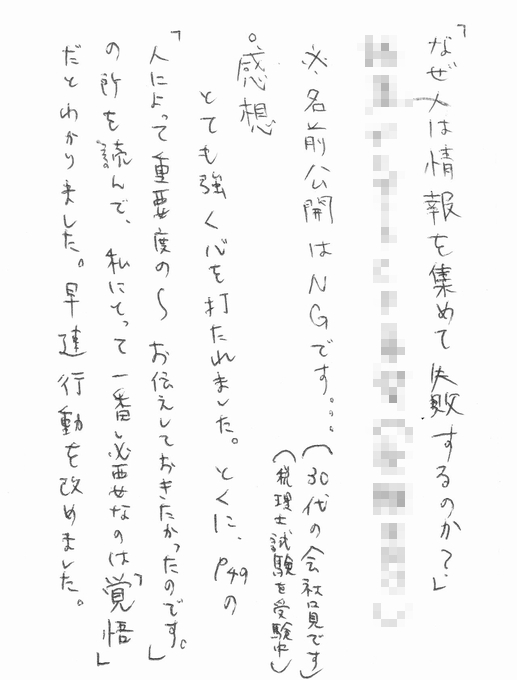 「なぜ人は情報を集めて失敗するのか？」
※名前公開はNGです。。。(30代の会社員です)
(税理士試験を受験中)
○感想
とても強く心を打たれました。とくに、P49の
「人によって重要度の〜お伝えしておきたかったのです。」
の所を読んで、私にとって一番必要なのは「覚悟」
だとわかりました。早速行動を改めました。